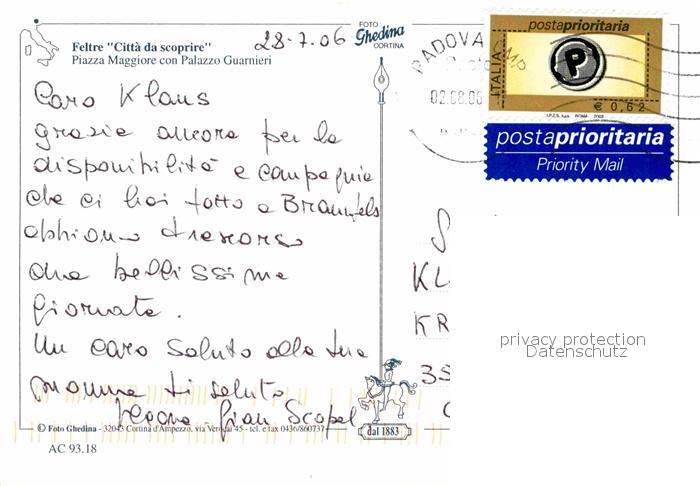 Feltre "Città da scoprire"
Piazza Maggiore con Palazzo Guarnieri
28-7.06
FOTO
Ghedina
CORTINA
PADOVA CMP
02.08.06
ITALIA
postaprioritaria
P
€ 0,62
I.P.Z.S. S.p.A. ROMA 2003
postaprioritaria
Priority Mail
Caro Klaus
grazie ancora per la
disponibilità e compagnia
che ci hai fatto a Braunfels
abbiamo trascorso
due bellissime
giornate.
Un caro saluto alla tua
mamma ti saluto
Gian Scopel
S
KL
KR
35
privacy protection
Datenschutz
© Foto Ghedina - 32043 Cortina d'Ampezzo, via Verocai 45 - tel. e fax 0436/860737
dal 1883
AC 93.18